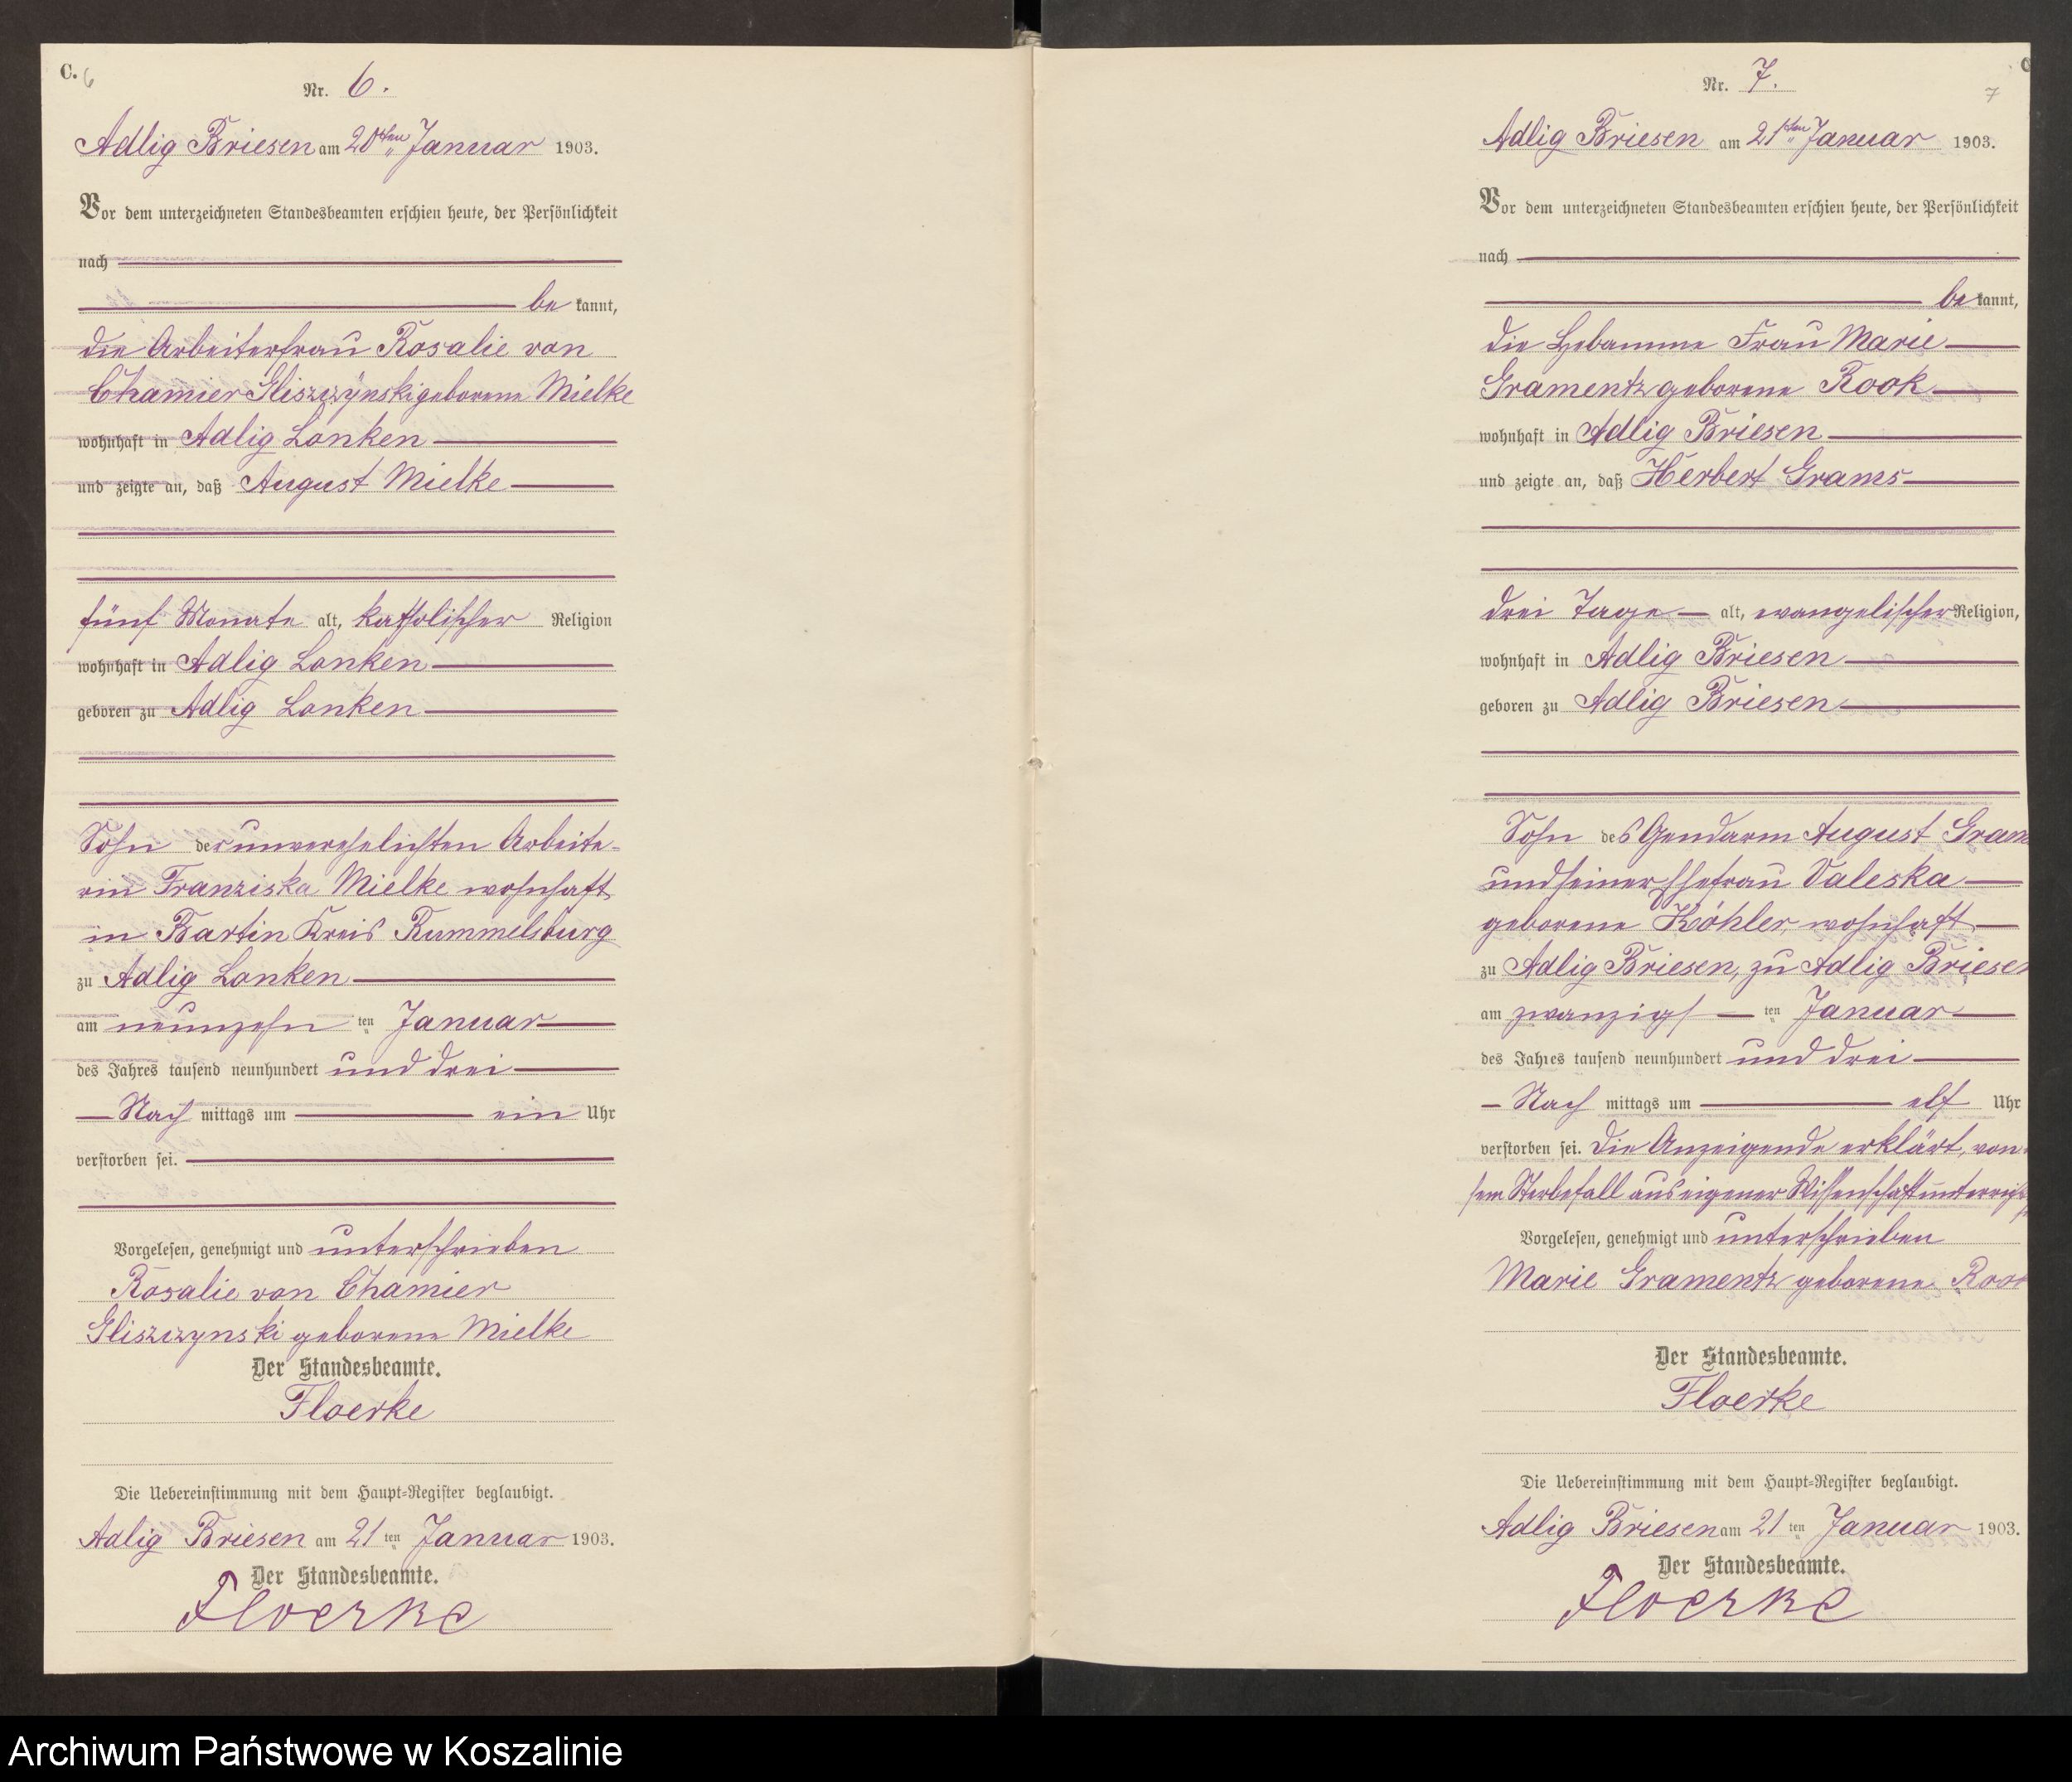 C. 6
Nr. 6.
Adlig Briesen am 20ten Januar 1903.
Vor dem unterzeichneten Standesbeamten erschien heute, der Persönlichkeit
nach
be kannt,
die Arbeiterfrau Rosalie von
Chamier Gliszczynski geborene Mielke
wohnhaft in Adlig Lonken
und zeigte an, daß August Mielke
fünf Monate alt, katholischer Religion
wohnhaft in Adlig Lonken
geboren zu Adlig Lonken
Sohn der unverehelichten Arbeite-
rin Franziska Mielke wohnhaft
in Bartin Kreis Rummelsburg
zu Adlig Lonken
am neunzehn ten Januar
des Jahres tausend neunhundert und drei
Nach mittags um ein Uhr
verstorben sei.
Vorgelesen, genehmigt und unterschrieben
Rosalie von Chamier
Gliszczynski geborene Mielke
Der Standesbeamte.
Floerke
Die Uebereinstimmung mit dem Haupt-Register beglaubigt.
Adlig Briesen am 21 ten Januar 1903.
Der Standesbeamte.
Floerke
C
Nr. 7.
7
Adlig Briesen am 21ten Januar 1903.
Vor dem unterzeichneten Standesbeamten erschien heute, der Persönlichkeit
nach
be kannt,
die Hebamme Frau Marie
Gramentz geborene Rook
wohnhaft in Adlig Briesen
und zeigte an, daß Herbert Grams
drei Tage alt, evangelischer Religion,
wohnhaft in Adlig Briesen
geboren zu Adlig Briesen
Sohn des Gendarm August Gram
und seiner Ehefrau Valeska
geborene Köhler, wohnhaft
zu Adlig Briesen, zu Adlig Briesen
am zwanzigs ten Januar
des Jahres tausend neunhundert und drei
Nach mittags um elf Uhr
verstorben sei. Die Anzeigende erklärt, von
sem Sterbefall aus eigener Wissenschaft unterrich
Vorgelesen, genehmigt und unterschrieben
Marie Gramentz geborene Rook
Der Standesbeamte.
Floerke
Die Uebereinstimmung mit dem Haupt-Register beglaubigt.
Adlig Briesen am 21 ten Januar 1903.
Der Standesbeamte.
Floerke
Archiwum Państwowe w Koszalinie